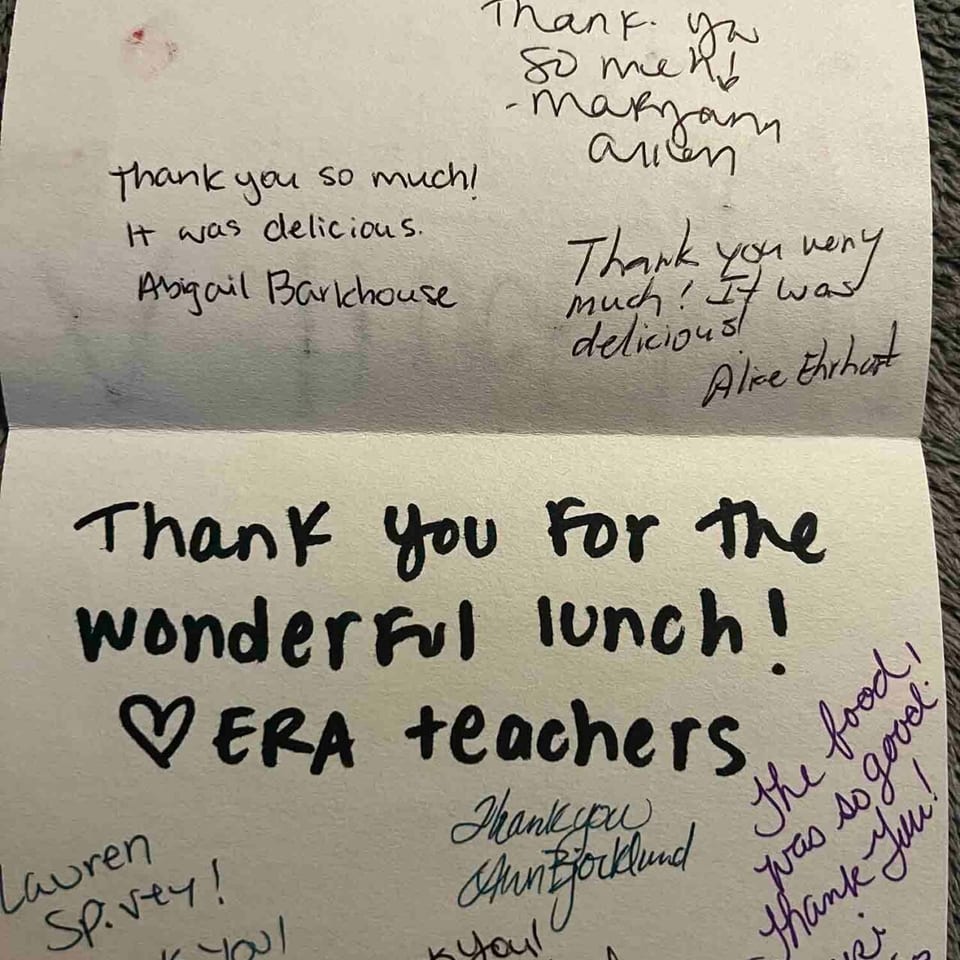 Thank you
so much!
- Maryann
Allen
Thank you so much!
It was delicious.
Abigail Barkhouse
Thank you very
much! It was
delicious!
Alice Ehrhart
Thank you For the
wonderful lunch!
♡ ERA teachers
The food
was so good.
Thank You!
Thank you
Ann Bjocklund
Lauren
Spivey!
k you!
k you!